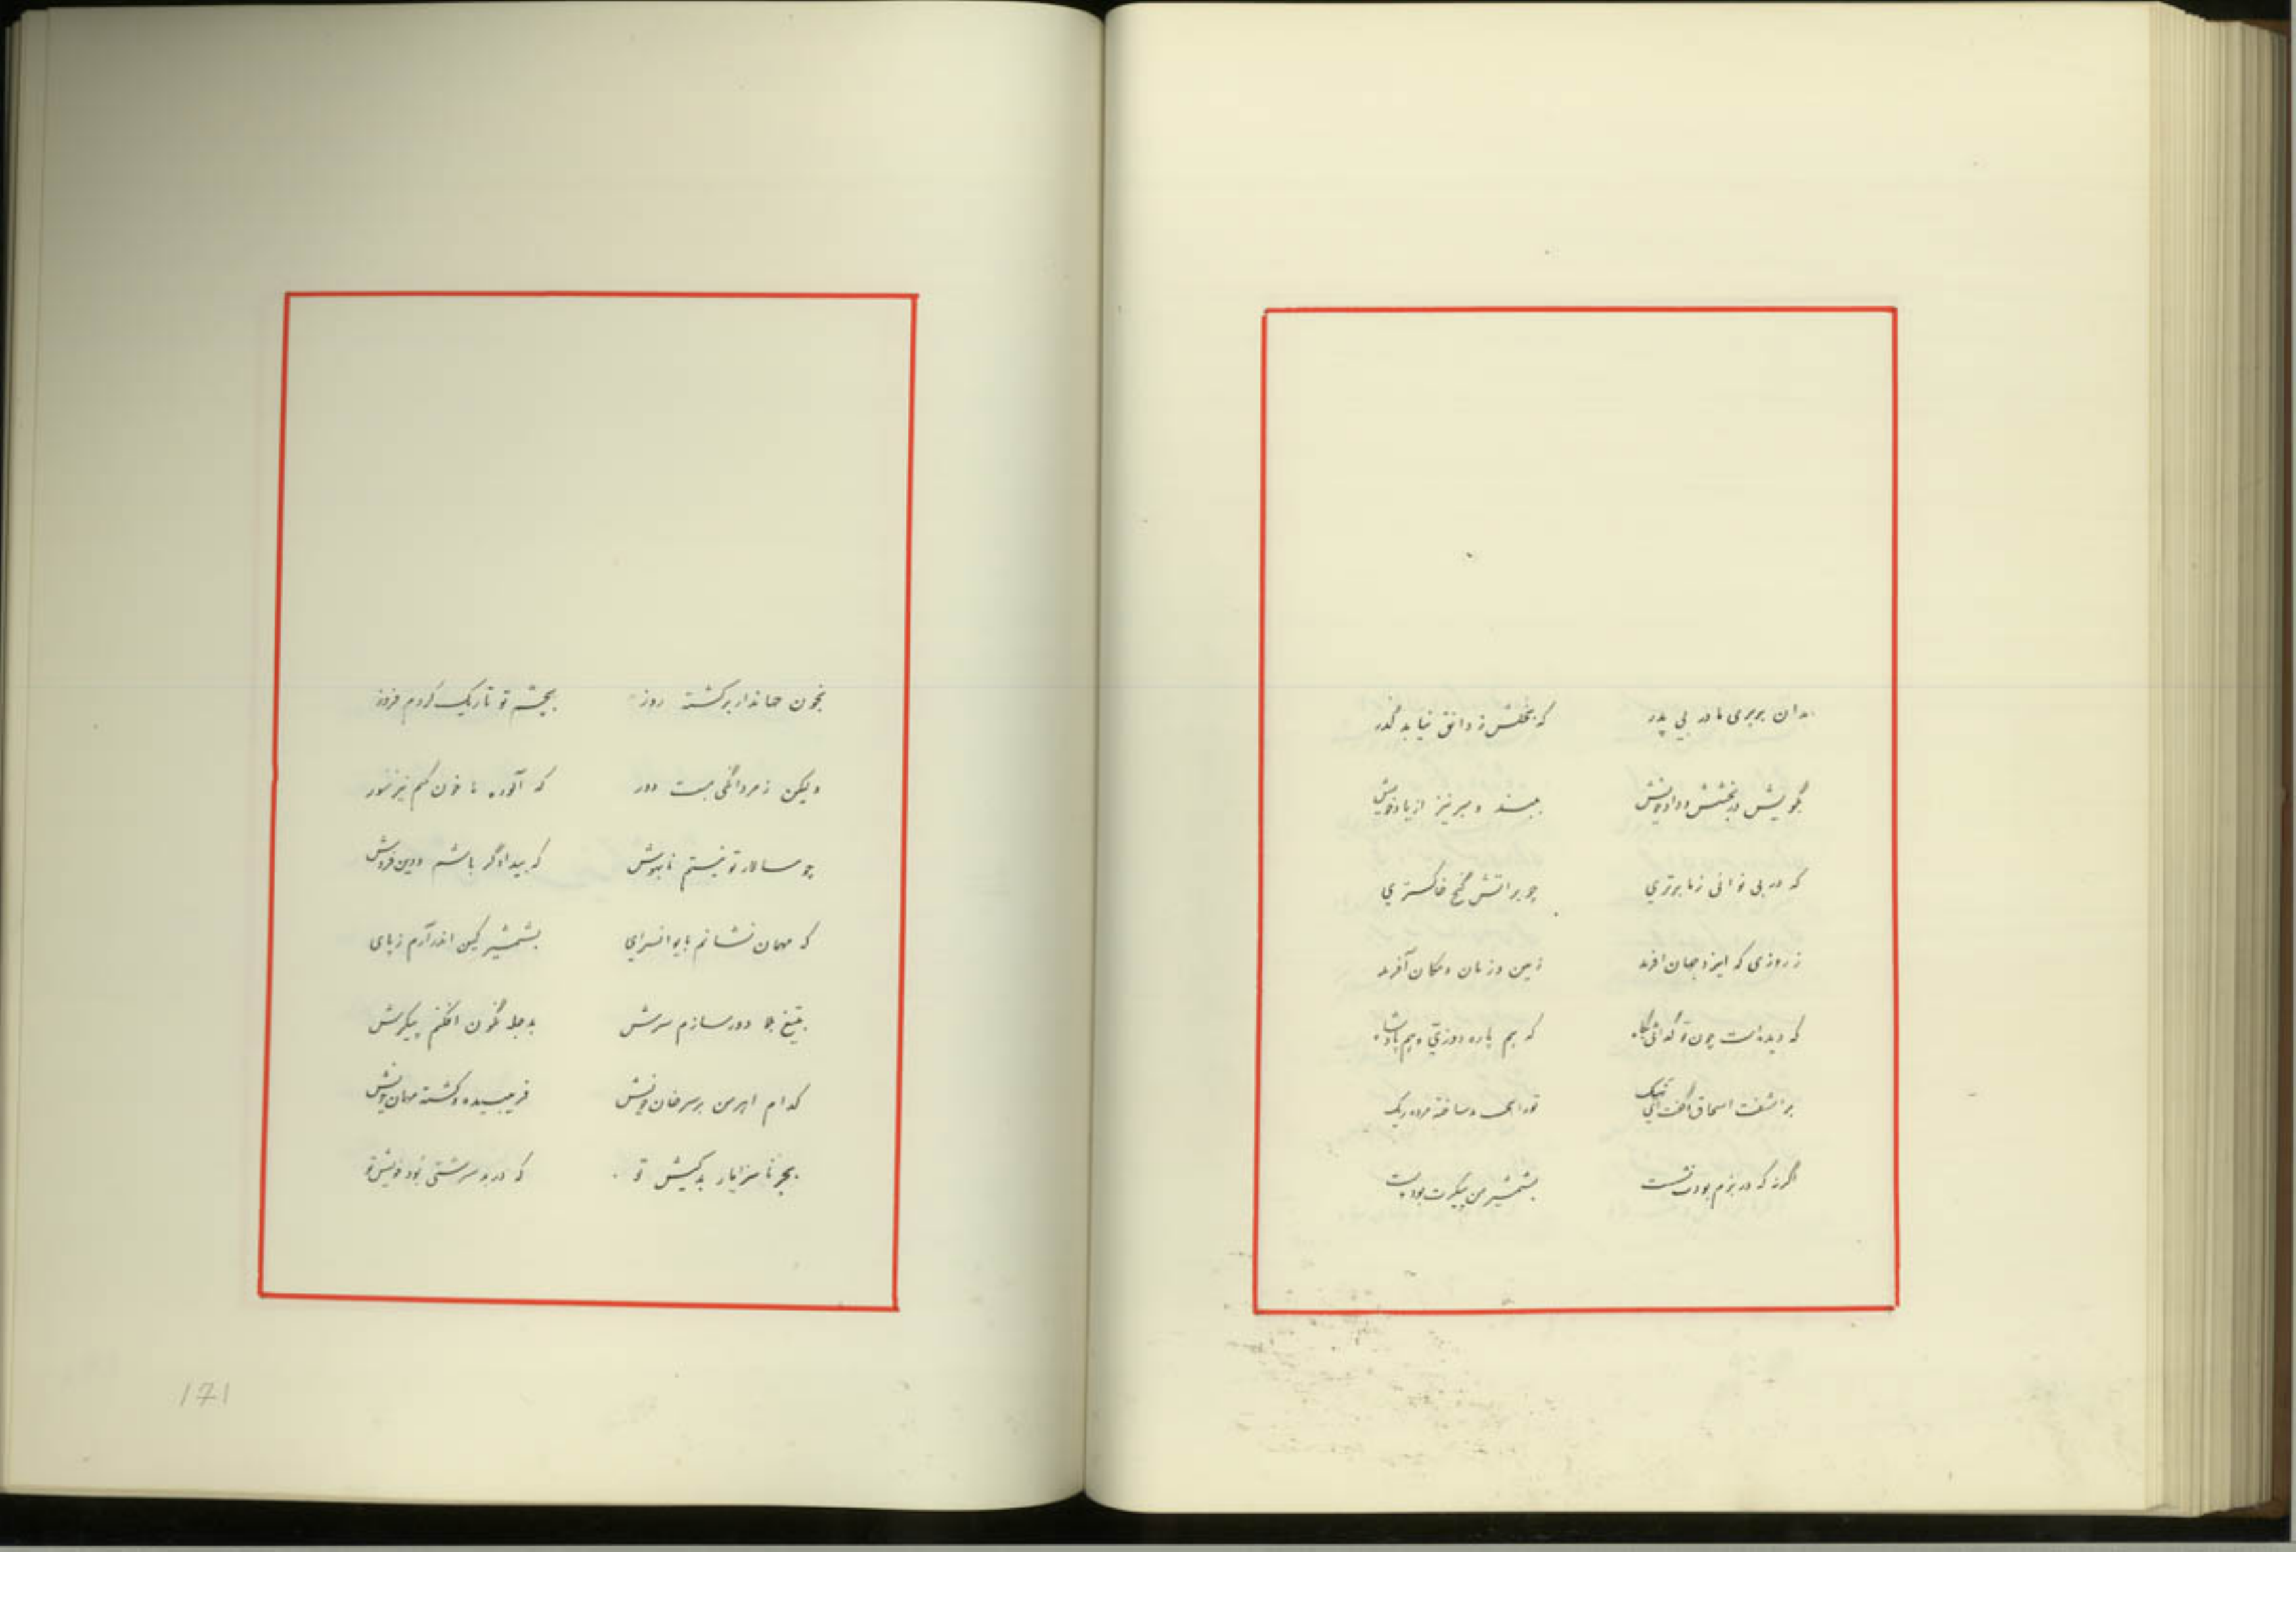 بدان بربری مادر بی پدر که بخلش ز دانق نیابد گذر
بگویش در بخشش و داد و دانش ببند و ببر نیز از یاد خویش
که در بی نوائی ز ما برتری چو بر آتش گنج خاکستری
ز روزی که ایزد جهان افرید زمین و زمان و مکان آفرید
که دیده است چون تو گدائی بگاه که هم پاره دوزی و هم پادشاه
بر اشفت اسحاق و گفت ای
اگر نه که در بزم بودت نشست بشمشیر من پیکرت بود پست
بخون جهاندار برگشته روز بچشم تو تاریک کردم فروز
ولیکن ز مردانگی هست دور که آلوده با خون کنم نیز
چو سالار تو نیستم نابهوش که بیدادگر باشم و دین فروش
که مهمان نشانم بایوانسرای بشمشیر کین اندر آرم ز پای
بتیغ جفا دور سازم سرش بدجله نگون افکنم پیکرش
کدام اهرمن بر سر خوان خویش فریبیده و کشته مهمان خویش
بجز نا سزایار بد کیش تو که در بد سرشتی بود خویش تو
171